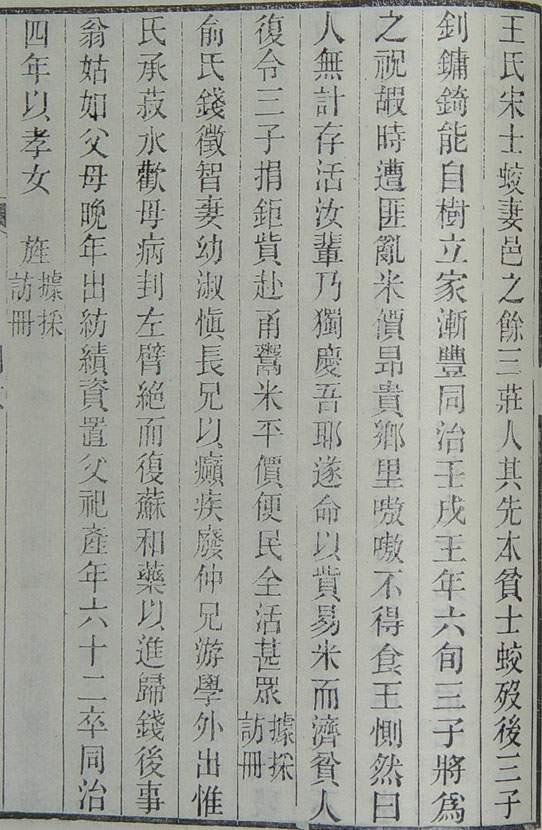 王氏宋士蛟妻邑之餘三莊人其先本貧士蛟歿後三子
釗鏞錡能自樹立家漸豐同治壬戌王年六旬三子將爲
之祝嘏時遭匪亂米價昂貴鄉里嗷嗷不得食王惻然曰
人無計存活汝輩乃獨慶吾耶遂命以貲易米而濟貧人
復令三子捐鉅貲赴甬糴米平價便民全活甚衆據採訪冊
俞氏錢徵智妻幼淑慎長兄以癲疾廢仲兄游學外出惟
氏承菽水歡母病刲左臂絕而復蘇和藥以進歸錢後事
翁姑如父母晚年出紡績資置父祀產年六十二卒同治
四年以孝女 旌據採訪冊